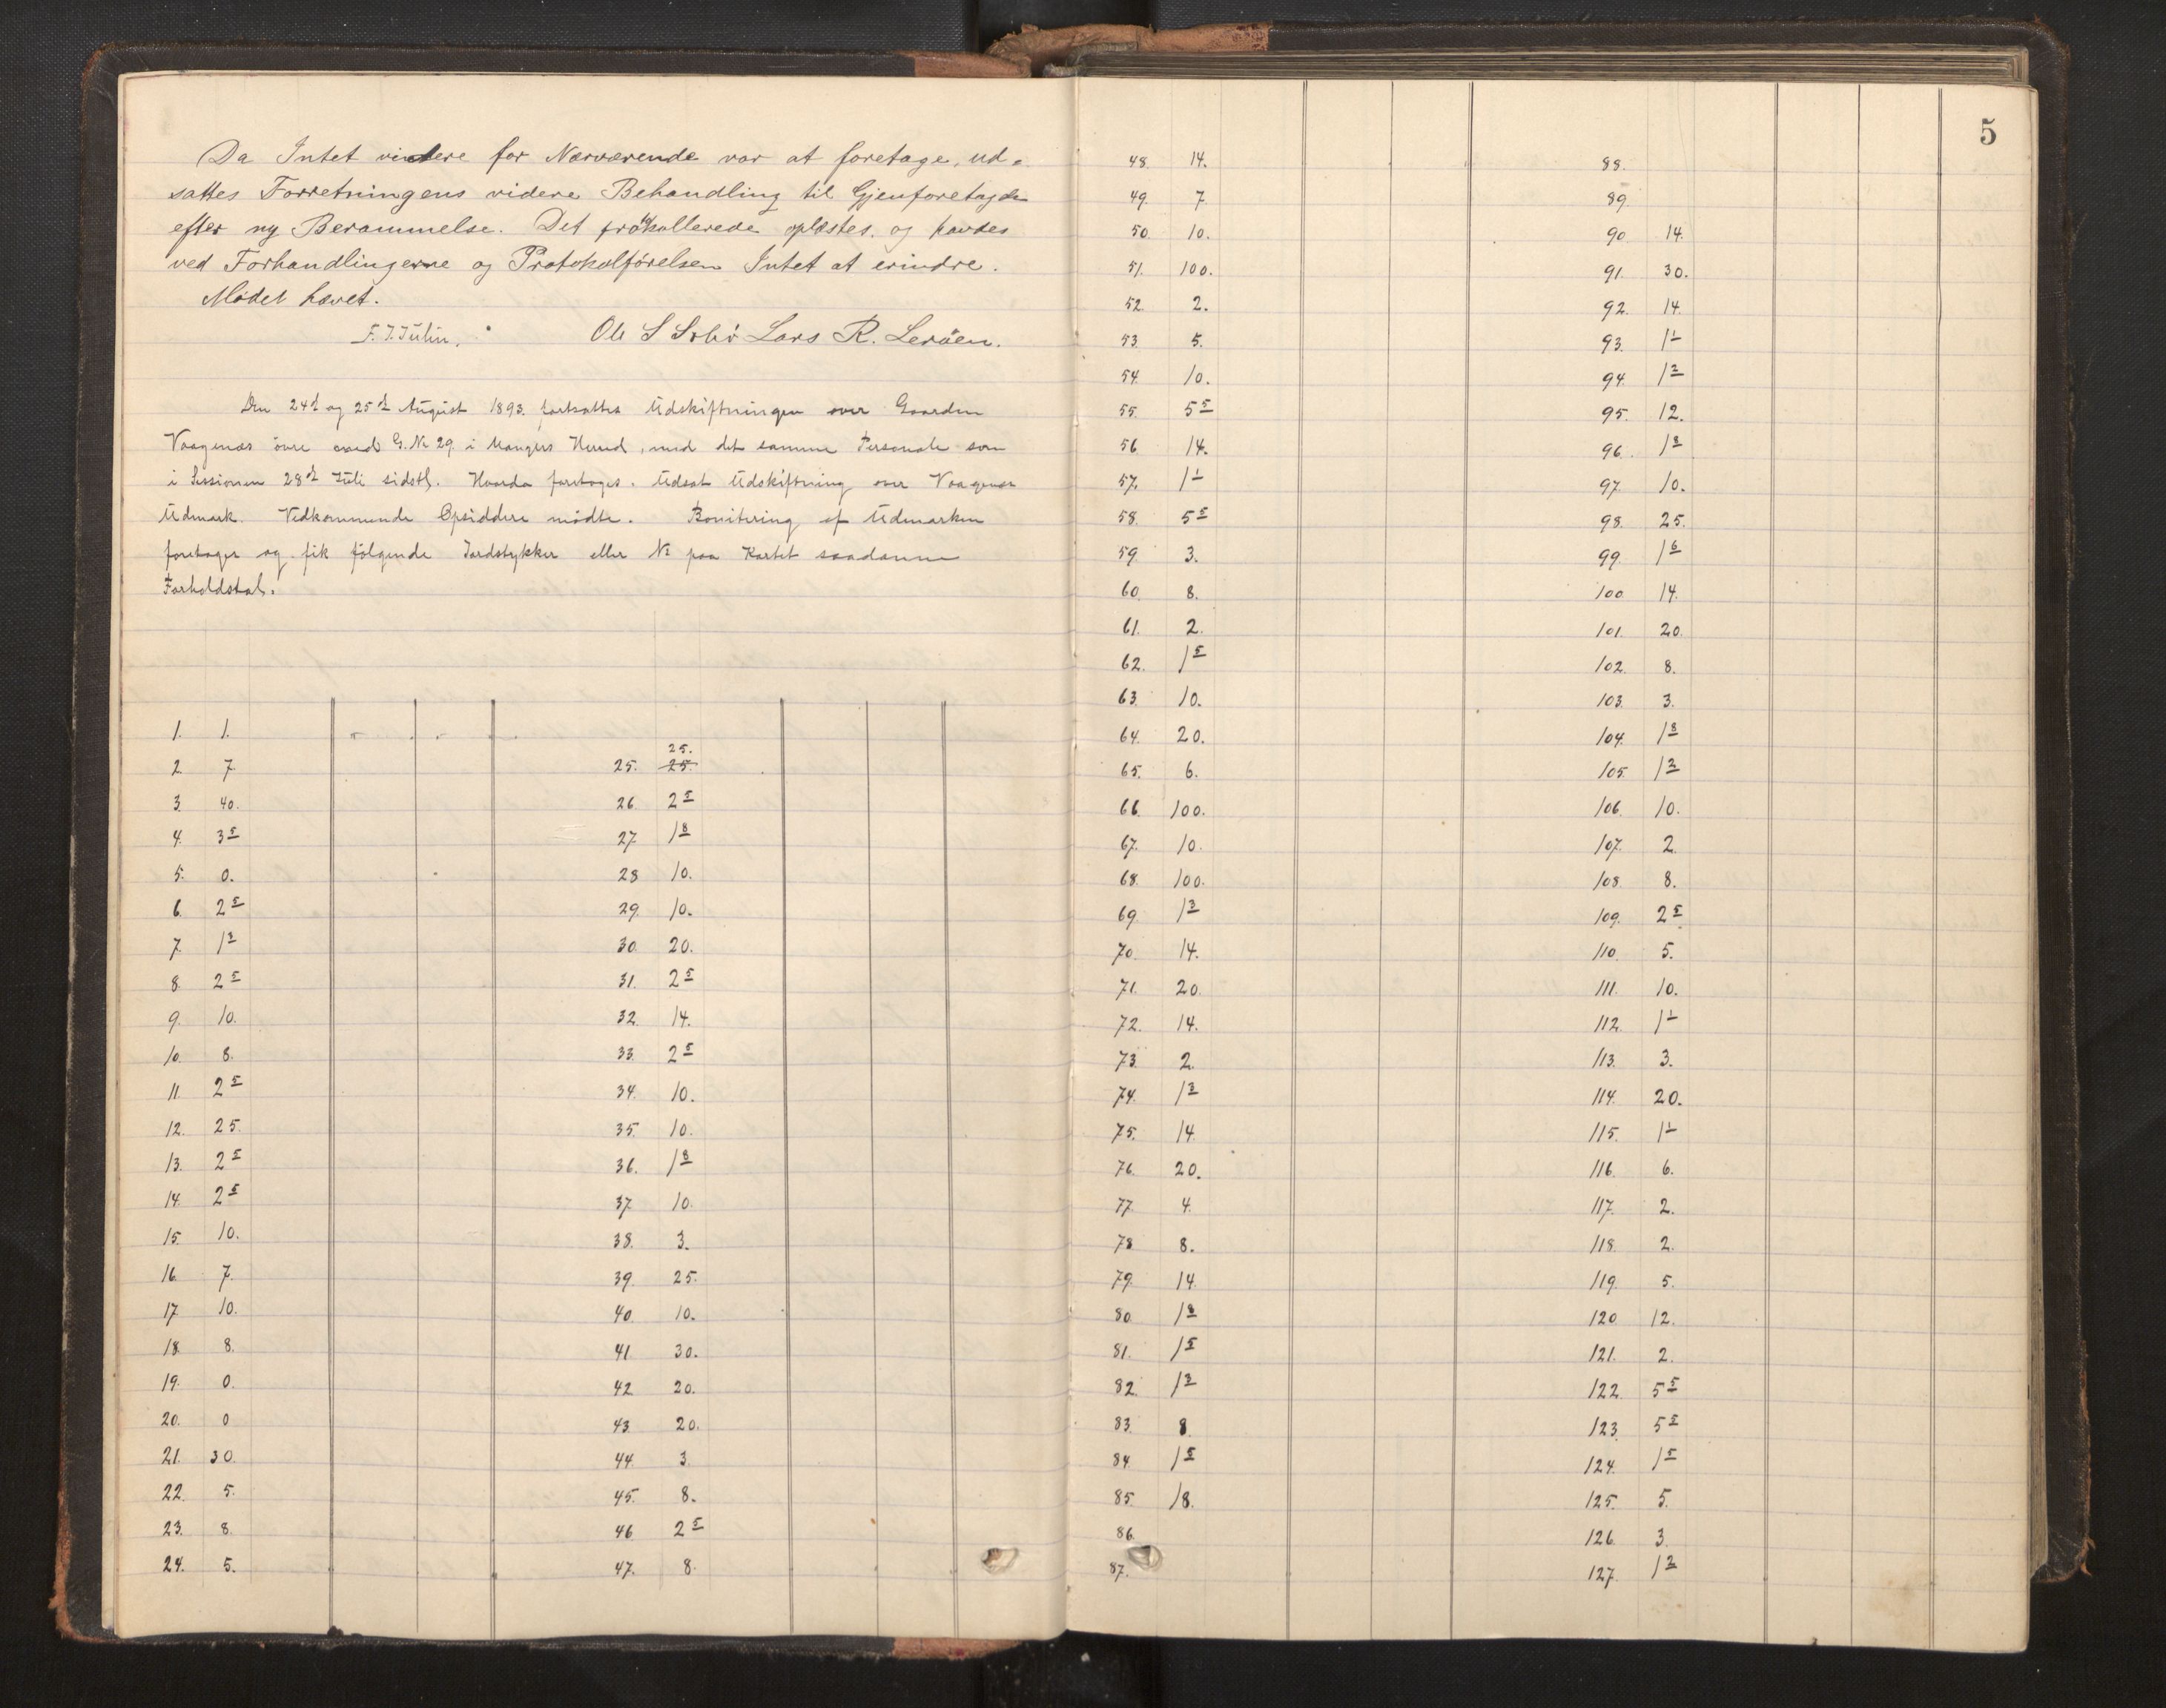 Da Intet videre for Nærværende var at foretage, ud-
sattes Forretningens videre Behandling til Gjenforetagde
efter ny Berammelse. Det protokollerede oplæstes og havdes
ved Forhandlingerne og Protokolførelsen Intet at erindre.
Mødet hævet.
Ole S Lars R. Leröen.
Den 24d og 25d August 1893 fortsattes Udskiftningen over Gaarden
Vaagenæs övre med G.No 29 i Mangers Herred, med det samme Personale som
i Sessionen 28d Juli sidstl. Hvorda foretoges. Udsat Udskiftning over Vaagenæs
Udmark. Vedkommende Opsiddere mödte. Bonitering af Udmarken
foretoges og fik fölgende Jordstykker eller No paa Kartet saadanne
Forholdstal.
1. 1.
2. 7
3. 40.
4. 3 5
5. 0.
6. 2 5
7. 1 3
8. 2 5
9. 10.
10. 8.
11. 2 5
12. 25.
13. 2 5
14. 2 5
15. 10.
16. 7.
17 10.
18. 8.
19. 0.
20. 0
21. 30.
22. 5.
23. 8.
24. 5.
25.
25. 25.
26 2 5
27 1 8
28 10.
29. 10.
30. 20.
31. 2 5
32. 14.
33. 2 5
34. 10.
35. 10.
36. 1 8
37. 10.
38. 3.
39. 25.
40 10.
41 30.
42 20.
43 20.
44. 3.
45. 8.
46 2 5
47. 8.
5
48. 14.
49. 7
50. 10.
51. 100.
52. 2.
53. 5.
54. 10.
55. 5 5
56 14.
57. 1 1
58. 5 5
59. 3.
60. 8.
61. 2.
62. 1 5
63. 10.
64. 20.
65. 6.
66. 100.
67. 10.
68. 100.
69. 1 3
70. 14.
71. 20.
72. 14.
73. 2.
74. 1 3
75. 14.
76. 20.
77. 4.
78. 8.
79. 14.
80. 1 8
81. 1 5
82. 1 3
83. 8
84. 1 5
85. 18.
86.
87.
88.
89.
90 14.
91. 30.
92. 14.
93. 1 1
94. 1 2
95. 12.
96. 1 8
97. 10.
98. 25.
99. 1 6
100 14.
101. 20.
102. 8.
103. 3.
104. 1 8
105. 1 2
106. 10.
107. 2.
108. 8.
109. 2 5
110. 5.
111. 10.
112. 1 1
113. 3.
114. 20.
115. 1 1
116. 6.
117. 2.
118. 2.
119. 5.
120 12.
121. 2.
122. 5 5
123. 5 5
124. 1 5
125. 5.
126. 3.
127. 1 2